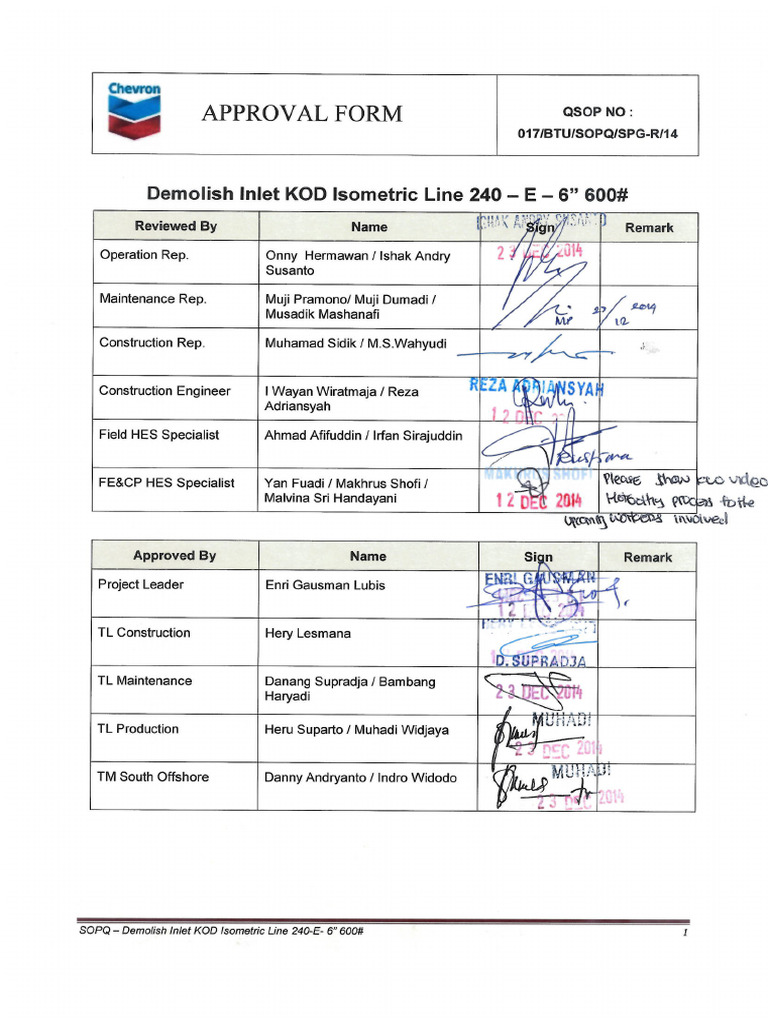 Chevron
APPROVAL FORM
QSOP NO :
017/BTU/SOPQ/SPG-R/14
Demolish Inlet KOD Isometric Line 240 – E – 6” 600#
Reviewed By Name Sign Remark
ISHAK ANDRY SUSANTO
Operation Rep. Onny Hermawan / Ishak Andry
Susanto
23 DEC 2014
Maintenance Rep. Muji Pramono/ Muji Dumadi /
Musadik Mashanafi
MP 23/12 2014
Construction Rep. Muhamad Sidik / M.S.Wahyudi
REZA ADRIANSYAH
Construction Engineer I Wayan Wiratmaja / Reza
Adriansyah
12 DEC
Field HES Specialist Ahmad Afifuddin / Irfan Sirajuddin
MAKHRUS SHOFI
FE&CP HES Specialist Yan Fuadi / Makhrus Shofi /
Malvina Sri Handayani
12 DEC 2014
Please show video
process to the
workers involved
Approved By Name Sign Remark
ENRI GAUSMAN
Project Leader Enri Gausman Lubis
12 2014
HERY
TL Construction Hery Lesmana
D. SUPRADJA
TL Maintenance Danang Supradja / Bambang
Haryadi
23 DEC 2014
MUHADI
TL Production Heru Suparto / Muhadi Widjaya
23 DEC 2014
MUHADI
TM South Offshore Danny Andryanto / Indro Widodo
23 DEC 2014
SOPQ – Demolish Inlet KOD Isometric Line 240-E- 6” 600# 1